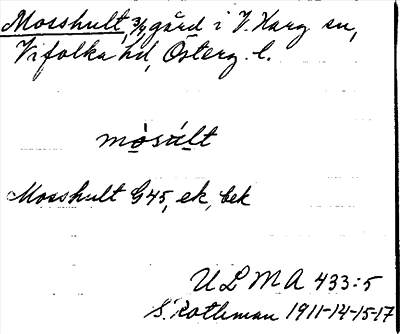 Mosshult, 3/4 gård i V. Harg sn,
Vifolka hd, Österg. l.
mòsúlt
Mosshult G45, ek, bek
ULMA 433:5
S. Rothman 1911-14-15-17